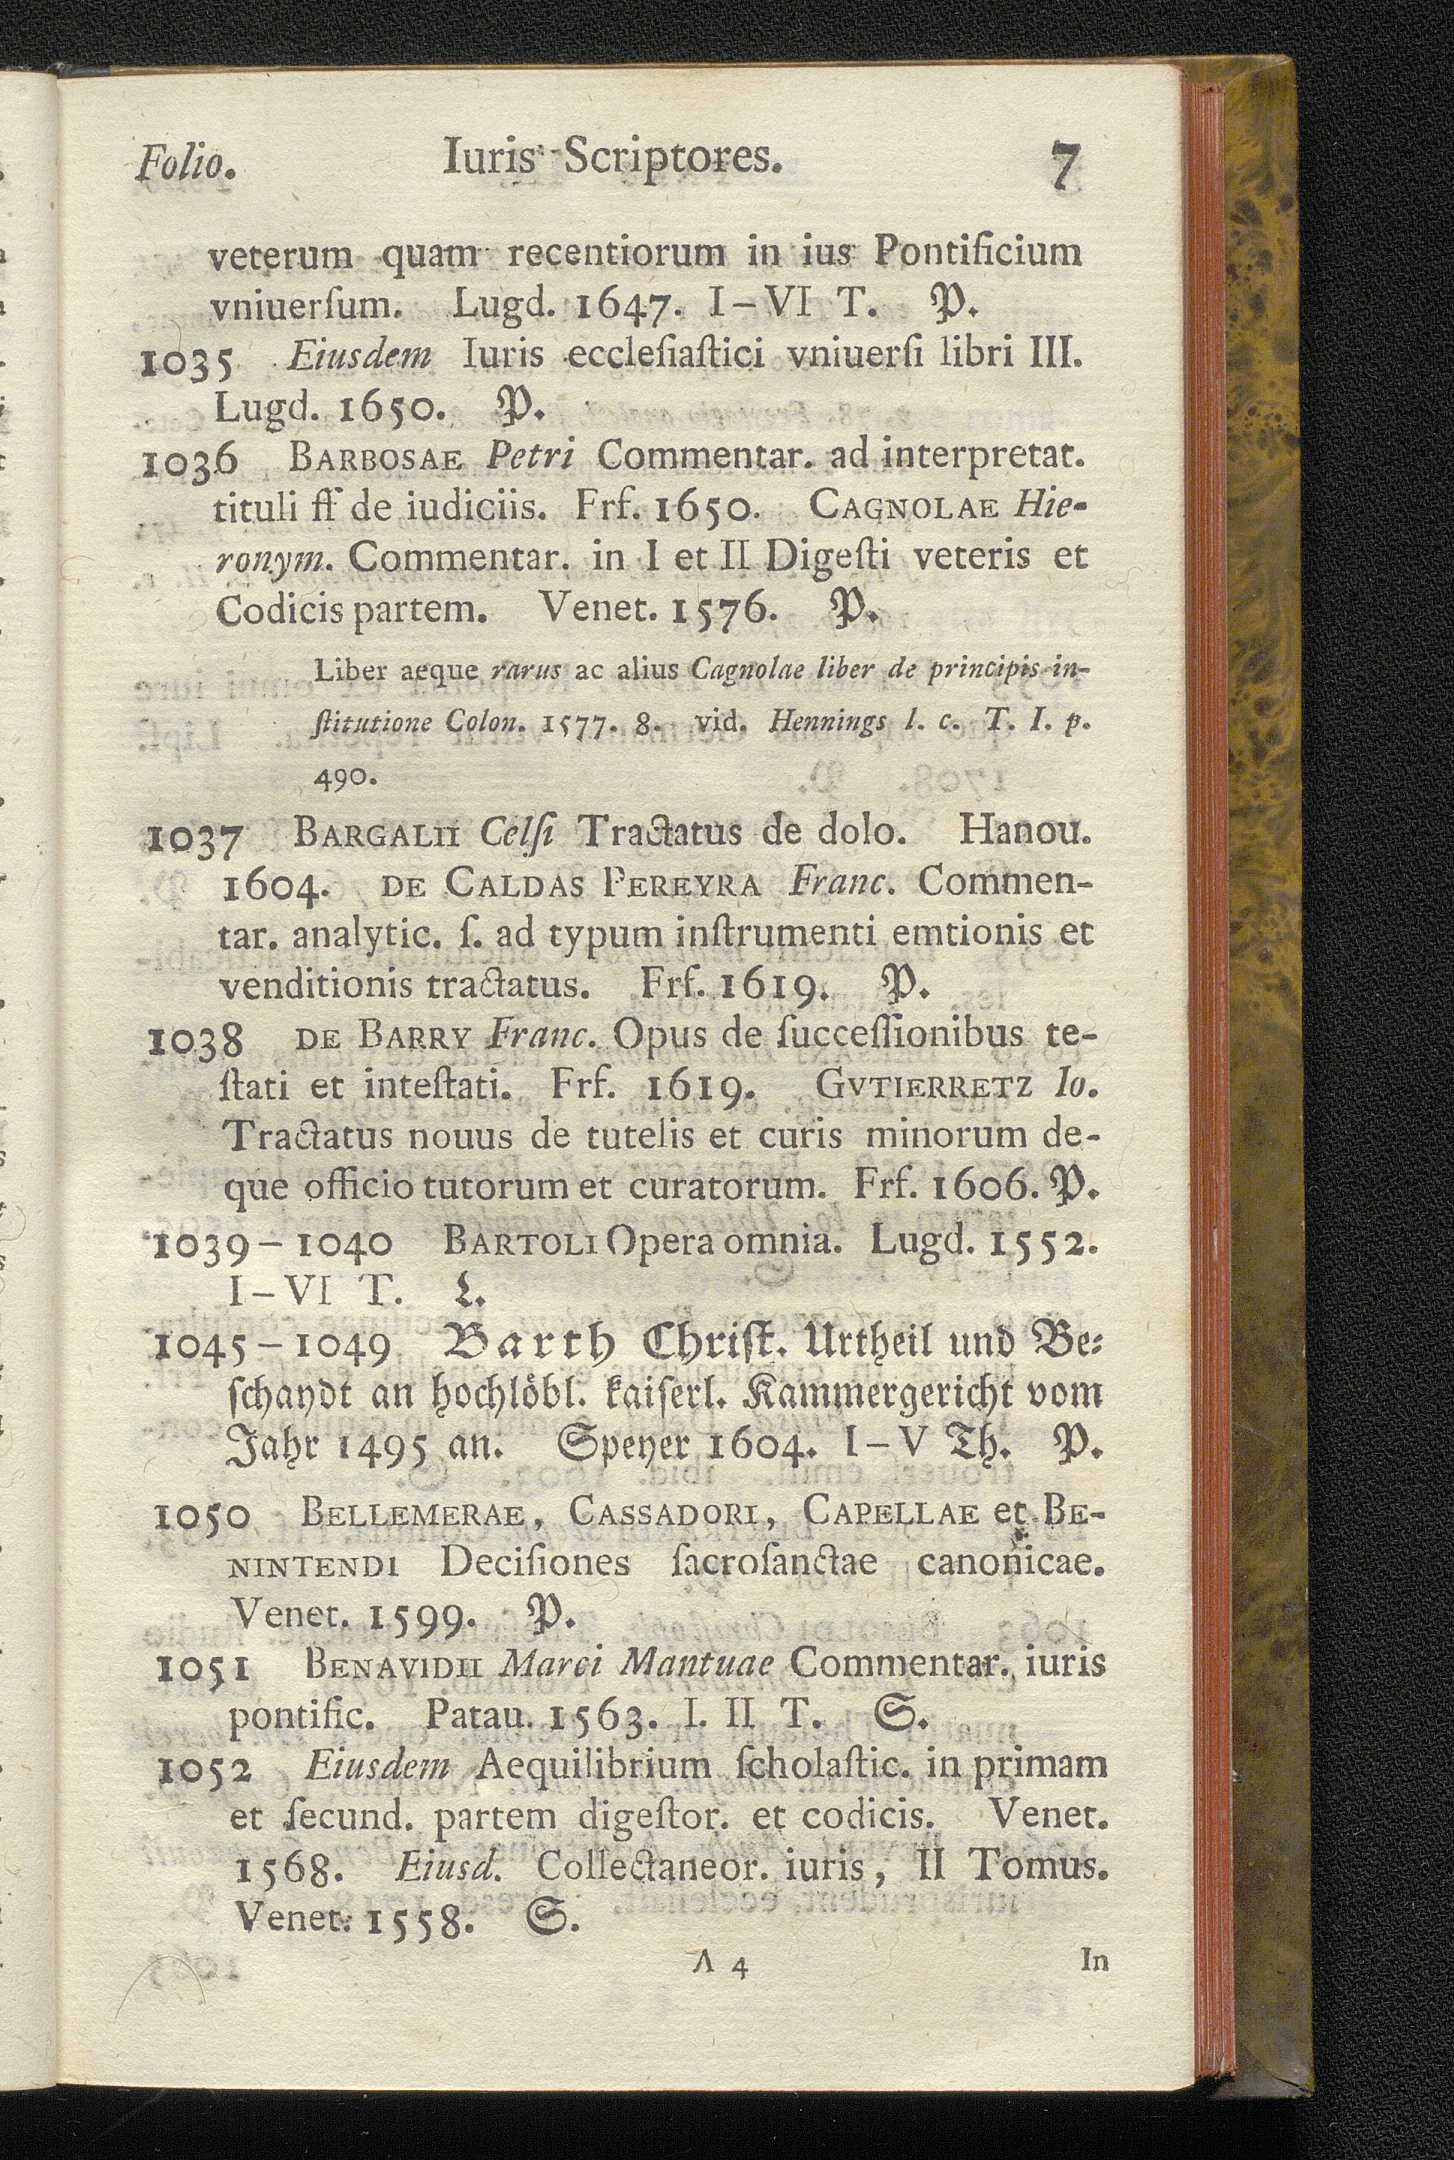 Folio. Iuris Scriptores. 7
veterum quam recentiorum in ius Pontificium
vniuerſum. Lugd. 1647. I–VI T. P.
1035 Eiusdem Iuris eccleſiaſtici vniuerſi libri III.
Lugd. 1650. P.
1036 BARBOSAE Petri Commentar. ad interpretat.
tituli ff de iudiciis. Frf. 1650. CAGNOLAE Hie-
ronym. Commentar. in I et II Digeſti veteris et
Codicis partem. Venet. 1576. P.
Liber aeque rarus ac alius Cagnolae liber de principis in-
ſtitutione Colon. 1577. 8. vid. Hennings l. c. T. I. p.
490.
1037 BARGALII Celſi Tractatus de dolo. Hanou.
1604. DE CALDAS PEREYRA Franc. Commen-
tar. analytic. ſ. ad typum inſtrumenti emtionis et
venditionis tractatus. Frf. 1619. P.
1038 DE BARRY Franc. Opus de ſucceſſionibus te-
ſtati et inteſtati. Frf. 1619. GVTIERRETZ Io.
Tractatus nouus de tutelis et curis minorum de-
que officio tutorum et curatorum. Frf. 1606. P.
1039–1040 BARTOLI Opera omnia. Lugd. 1552.
I–VI T. L.
1045–1049 Barth Chriſt. Urtheil und Be-
ſchaydt an hochlöbl. kaiſerl. Kammergericht vom
Jahr 1495 an. Speyer 1604. I–V Th. P.
1050 BELLEMERAE, CASSADORI, CAPELLAE et BE-
NINTENDI Deciſiones ſacroſanctae canonicae.
Venet. 1599. P.
1051 BENAVIDII Marci Mantuae Commentar. iuris
pontific. Patau. 1563. I. II T. S.
1052 Eiusdem Aequilibrium ſcholaſtic. in primam
et ſecund. partem digeſtor. et codicis. Venet.
1568. Eiusd. Collectaneor. iuris, II Tomus.
Venet. 1558. S.
A 4 In